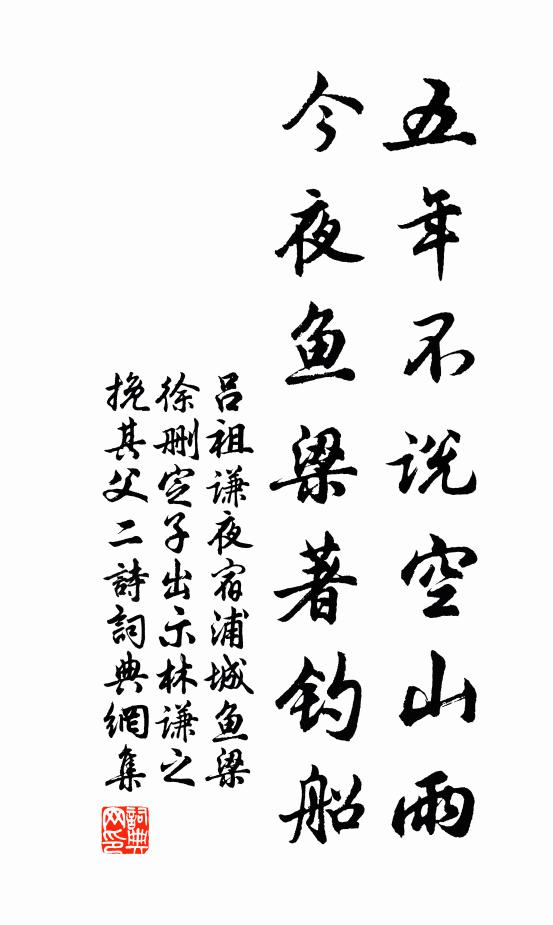 五年不说空山雨
今夜鱼梁著钓船
吕祖谦夜宿浦城鱼梁
徐删定子出示林谦之
挽其父二詩詞典網集
詞典
网印